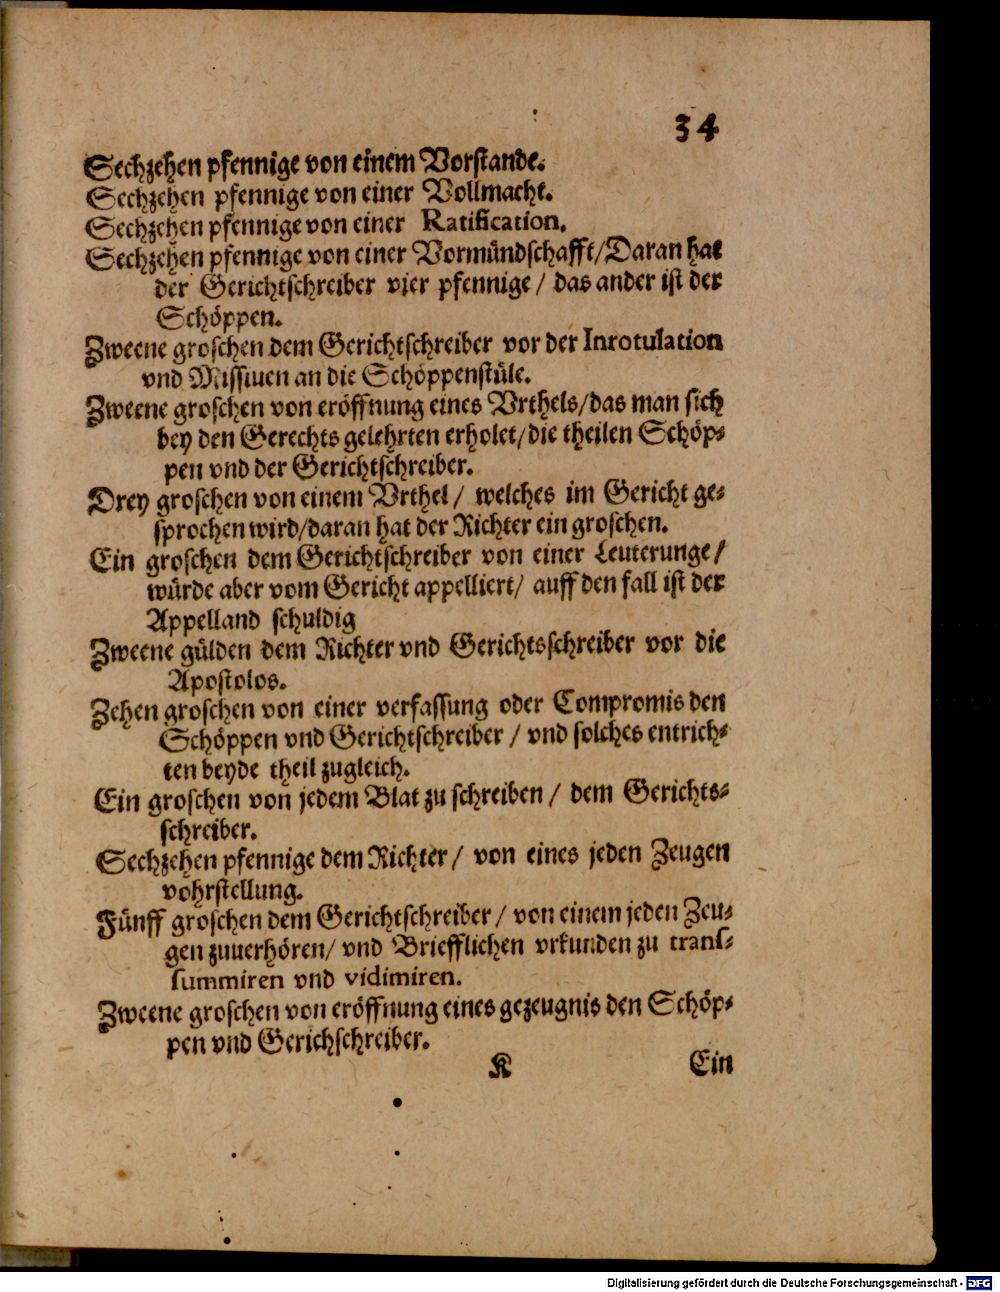 34
Sechzehen pfennige von einem Vorstande.
Sechzehen pfennige von einer Vollmacht.
Sechzehen pfennige von einer Ratification.
Sechzehen pfennige von einer Vormündschafft/Daran hat
der Gerichtschreiber vier pfennige / das ander ist der
Schöppen.
Zweene groschen dem Gerichtschreiber vor der Inrotulation
vnd Missiuen an die Schöppenstüle.
Zweene groschen von eröffnung eines Vrthels/das man sich
bey den Gerechts gelehrten erholet/die theilen Schöp-
pen vnd der Gerichtschreiber.
Drey groschen von einem Vrthel / welches im Gericht ge-
sprochen wird/daran hat der Richter ein groschen.
Ein groschen dem Gerichtschreiber von einer Leuterunge/
würde aber vom Gericht appelliert/ auff den fall ist der
Appelland schuldig
Zweene gülden dem Richter vnd Gerichtsschreiber vor die
Apostolos.
Zehen groschen von einer verfassung oder Compromis den
Schöppen vnd Gerichtschreiber / vnd solches entrich-
ten beyde theil zugleich.
Ein groschen von jedem Blat zu schreiben / dem Gerichts-
schreiber.
Sechzehen pfennige dem Richter / von eines jeden Zeugen
vohrstellung.
Fünff groschen dem Gerichtschreiber / von einem jeden Zeu-
gen zuuerhören/ vnd Briefflichen vrkunden zu trans-
summiren vnd vidimiren.
Zweene groschen von eröffnung eines gezeugnis den Schöp-
pen vnd Gerichschreiber.
K Ein
Digitalisierung gefördert durch die Deutsche Forschungsgemeinschaft - DFG